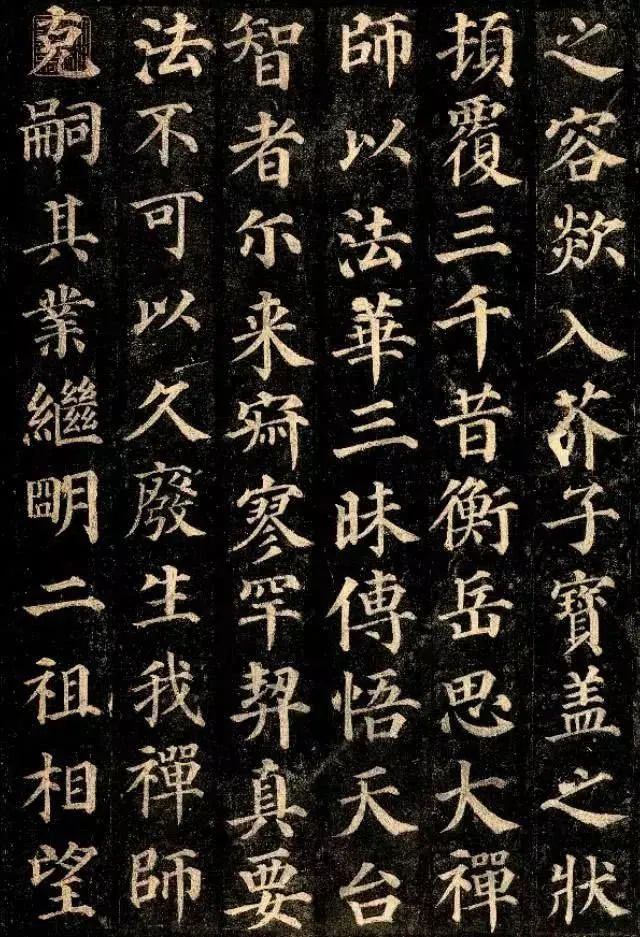 之容欻入芥子寶盖之狀
頃覆三千昔衡岳思大禪
師以法華三昧傳悟天台
智者尔来寂寥罕契真要
法不可以久廢生我禪師
克嗣其業繼明二祖相望